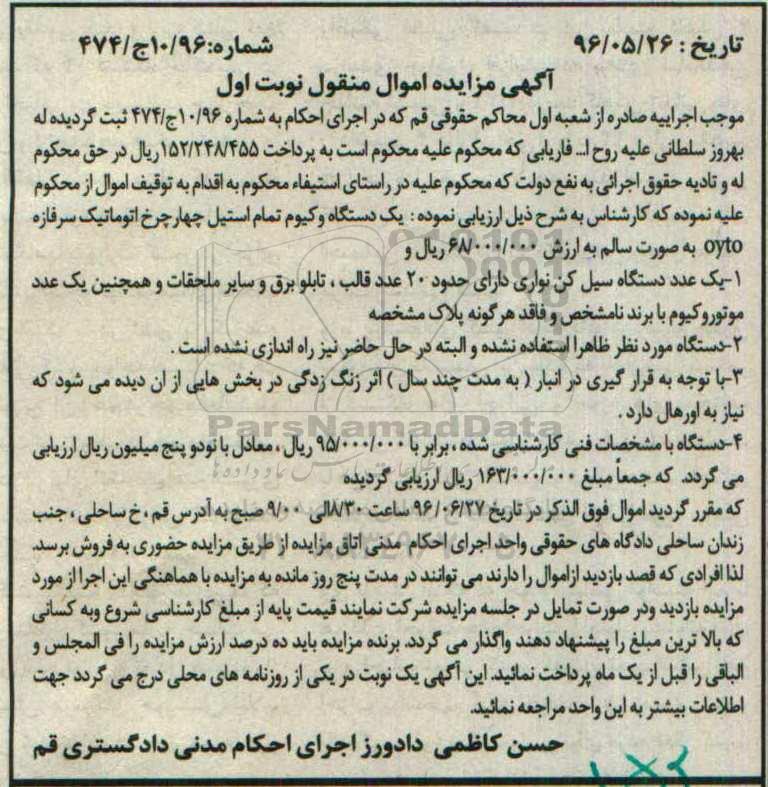 تاریخ : ۹۶/۰۵/۲۶ شماره:۱۰/۹۶ج/۴۷۴
آگهی مزایده اموال منقول نوبت اول
موجب اجراییه صادره از شعبه اول محاکم حقوقی قم که در اجرای احکام به شماره ۱۰/۹۶ج/۴۷۴ ثبت گردیده له
بهروز سلطانی علیه روح ا... فاریابی که محکوم علیه محکوم است به پرداخت ۱۵۲/۲۴۸/۴۵۵ریال در حق محکوم
له و تادیه حقوق اجرائی به نفع دولت که محکوم علیه در راستای استیفاء محکوم به اقدام به توقیف اموال از محکوم
علیه نموده که کارشناس به شرح ذیل ارزیابی نموده : یک دستگاه وکیوم تمام استیل چهارچرخ اتوماتیک سرفازه
oyto به صورت سالم به ارزش ۶۸/۰۰۰/۰۰۰ ریال و
۱-یک عدد دستگاه سیل کن نواری دارای حدود ۲۰ عدد قالب ، تابلو برق و سایر ملحقات و همچنین یک عدد
موتوروکیوم با برند نامشخص و فاقد هرگونه پلاک مشخصه
۲-دستگاه مورد نظر ظاهرا استفاده نشده و البته در حال حاضر نیز راه اندازی نشده است .
۳-با توجه به قرار گیری در انبار ( به مدت چند سال ) اثر زنگ زدگی در بخش هایی از ان دیده می شود که
نیاز به اورهال دارد .
۴-دستگاه با مشخصات فنی کارشناسی شده ، برابر با ۹۵/۰۰۰/۰۰۰ ریال ، معادل با نودو پنج میلیون ریال ارزیابی
می گردد. که جمعاً مبلغ ۱۶۳/۰۰۰/۰۰۰ ریال ارزیابی گردیده
که مقرر گردید اموال فوق الذکر در تاریخ ۹۶/۰۶/۲۷ ساعت ۸/۳۰الی ۹/۰۰ صبح به آدرس قم ، خ ساحلی ، جنب
زندان ساحلی دادگاه های حقوقی واحد اجرای احکام مدنی اتاق مزایده از طریق مزایده حضوری به فروش برسد.
لذا افرادی که قصد بازدید ازاموال را دارند می توانند در مدت پنج روز مانده به مزایده با هماهنگی این اجرا از مورد
مزایده بازدید ودر صورت تمایل در جلسه مزایده شرکت نمایند قیمت پایه از مبلغ کارشناسی شروع وبه کسانی
که بالا ترین مبلغ را پیشنهاد دهند واگذار می گردد. برنده مزایده باید ده درصد ارزش مزایده را فی المجلس و
الباقی را قبل از یک ماه پرداخت نمائید. این آگهی یک نوبت در یکی از روزنامه های محلی درج می گردد جهت
اطلاعات بیشتر به این واحد مراجعه نمائید.
حسن کاظمی دادورز اجرای احکام مدنی دادگستری قم
ParsNamadData